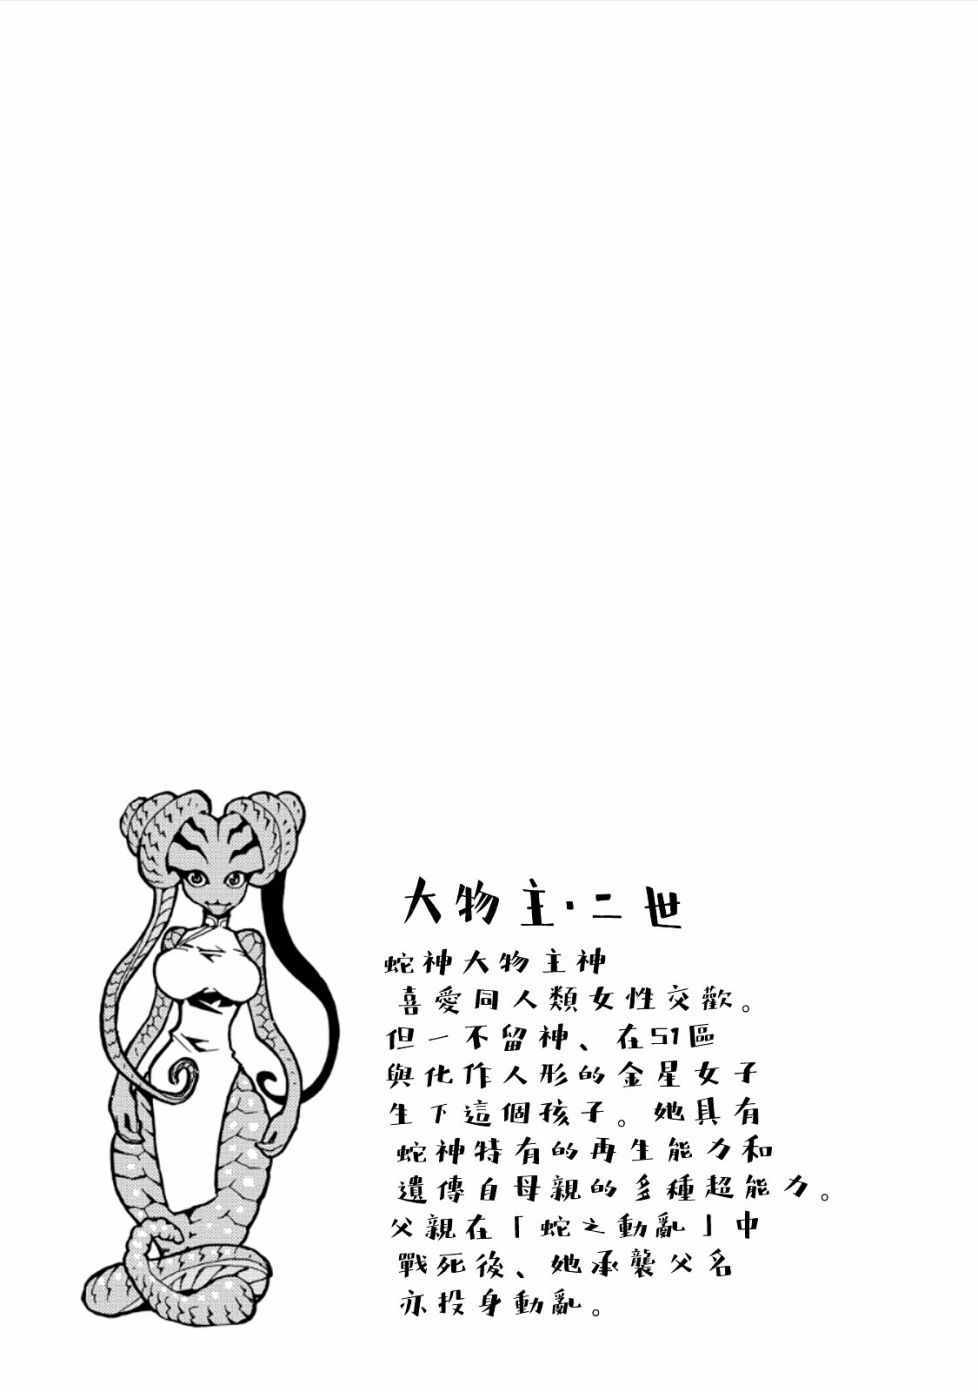 大物主・二世
蛇神大物主神
喜愛同人類女性交歡。
但一不留神、在51區
與化作人形的金星女子
生下這個孩子。她具有
蛇神特有的再生能力和
遺傳自母親的多種超能力。
父親在「蛇之動亂」中
戰死後、她承襲父名
亦投身動亂。